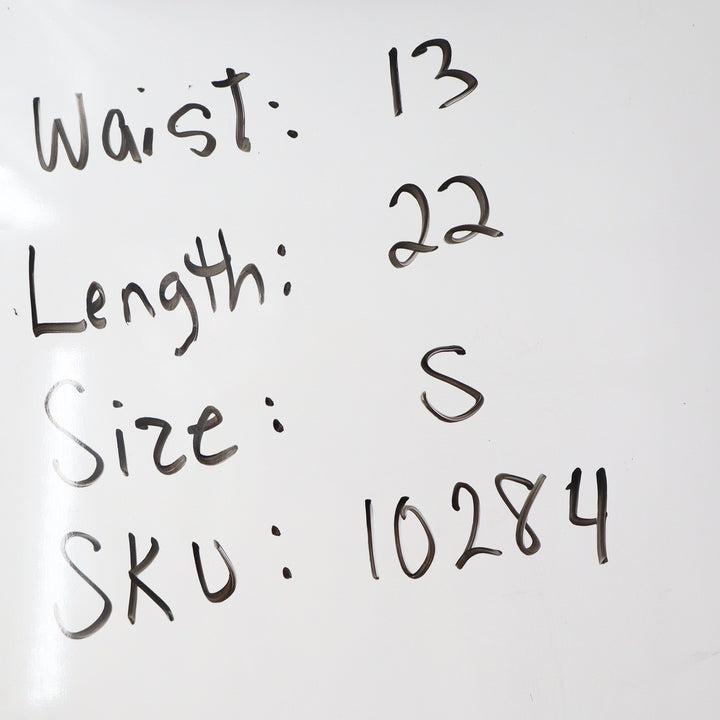 Waist: 13
Length: 22
Size: S
SKU: 10284